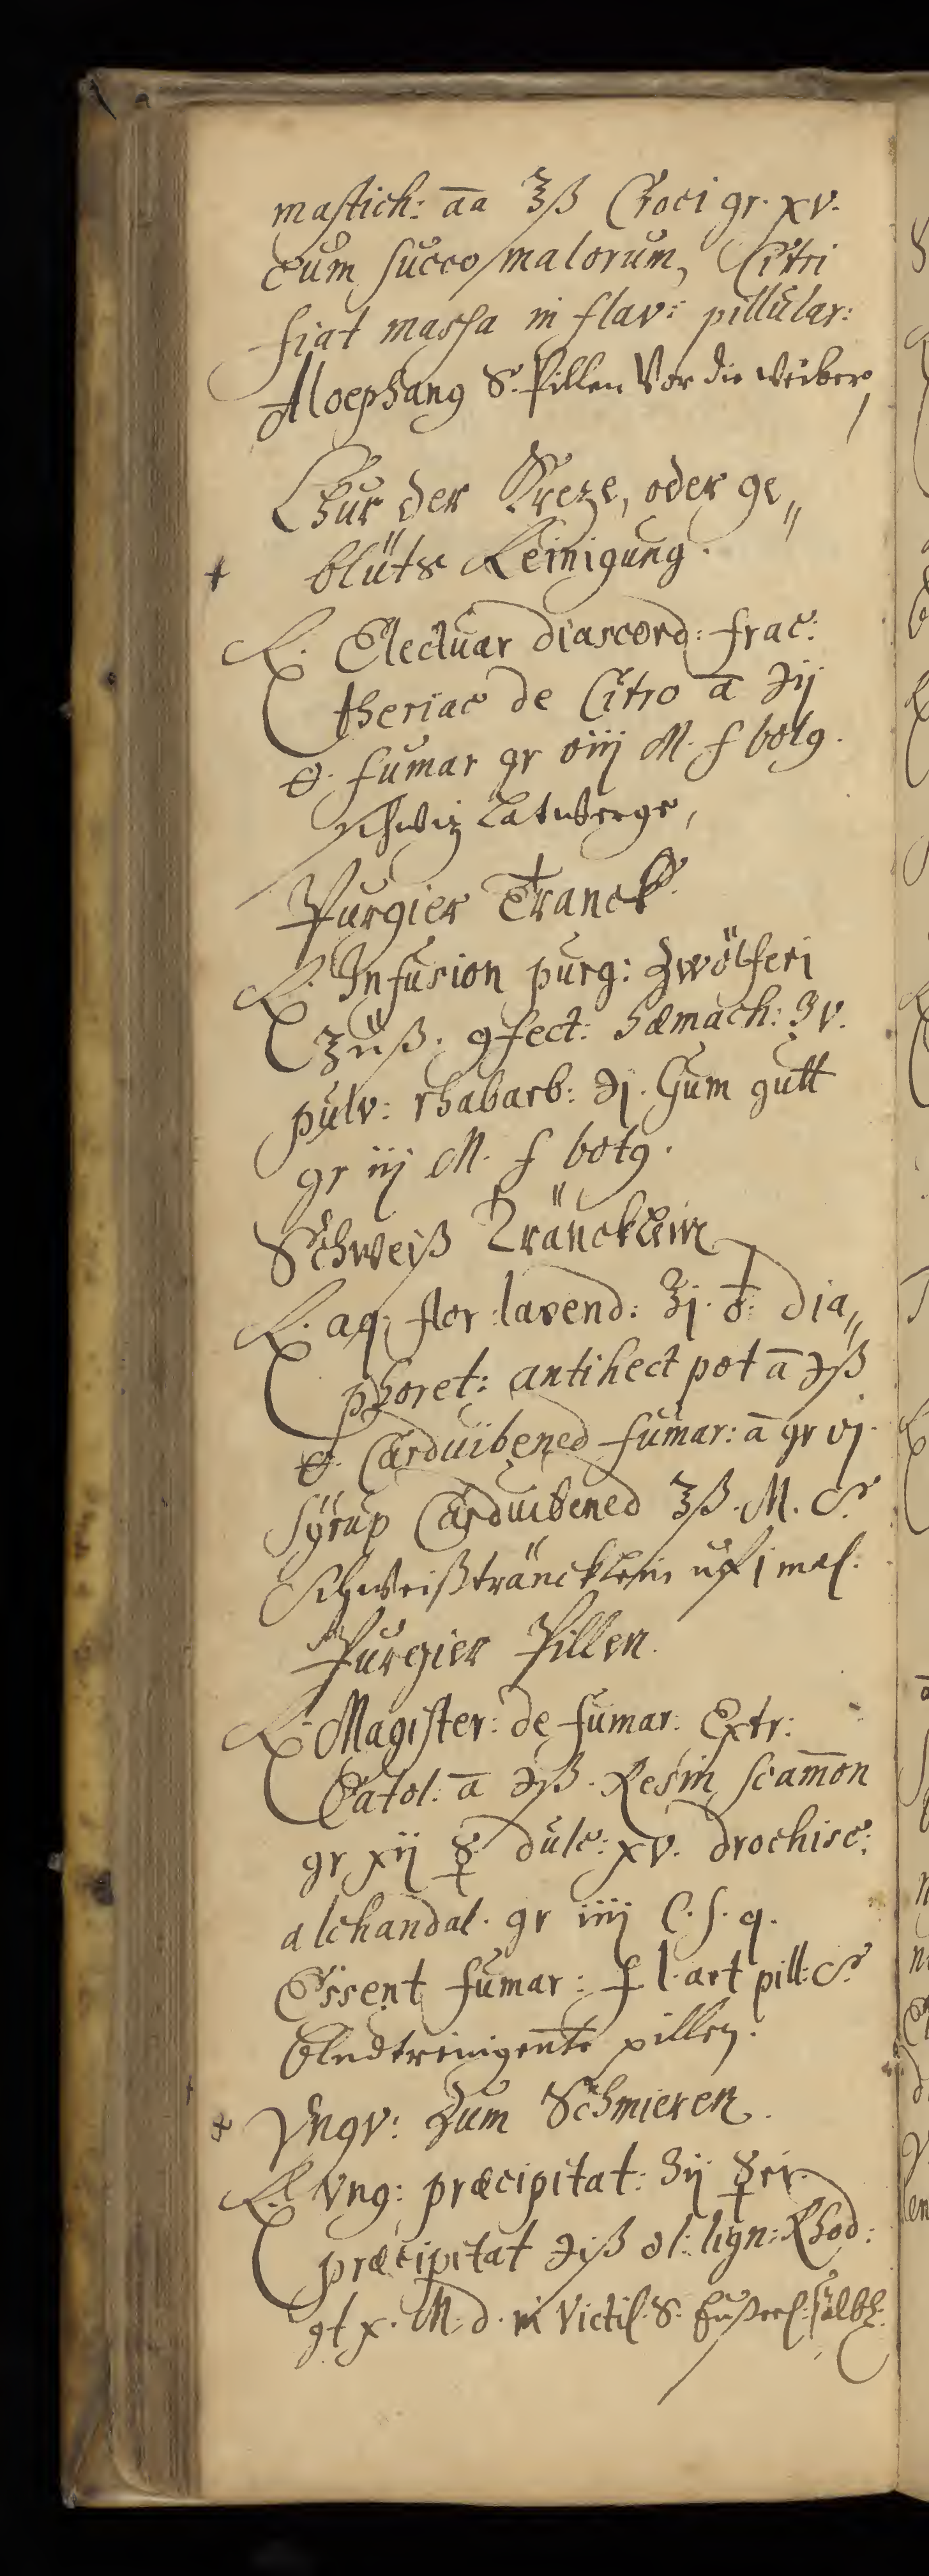 mastich: āa ʒß Croci gr. xv.
cum succo malorum, Citri
fiat massa in flav: pillular:
Aloephang S. Pillen Vor die weiber,
Chur der Kreze, oder ge„
+ blüts Reinigung.
℞. Electuar diascord: frac:
theriac de Citro ā ℈ij
🜔. fumar gr viij M. f bolꝯ.
schwiz Latwerge,
Purgier Tranck
℞. Infusion purg: Zwölferi
℥iiß. ꝯfect: Hamach: ʒv.
pulv: rhabarb: ℈j. Gum gutt
gr iij M. f botꝯ.
Schweiß Träncklein
℞. aq; flor lavend: ℥j. ♁ dia„
phoret: antihect pot ā ℈ß
🜔. Cardui bened fumar: ā gr vj.
Syrup Cardui bened ʒß. M. S.
Schweißträncklein uf 1 mal.
Purgier Pillen.
℞ Magister: de fumar: Extr:
Catol: ā ℈ß. Resin scamōn
gr xij ☿ dulc: xv. drochisc:
alchandal. gr iiij C. s. q.
Essent fumar: f l. art pill: S.
Bludtreinigente pillen.
+ Vngv: Zum Schmieren.
℞ Vng: præcipitat: ʒij ☿ri
præcipitat ℈iß ol: lign: Rhod:
gt x. M. d. in Victil. S. salb.